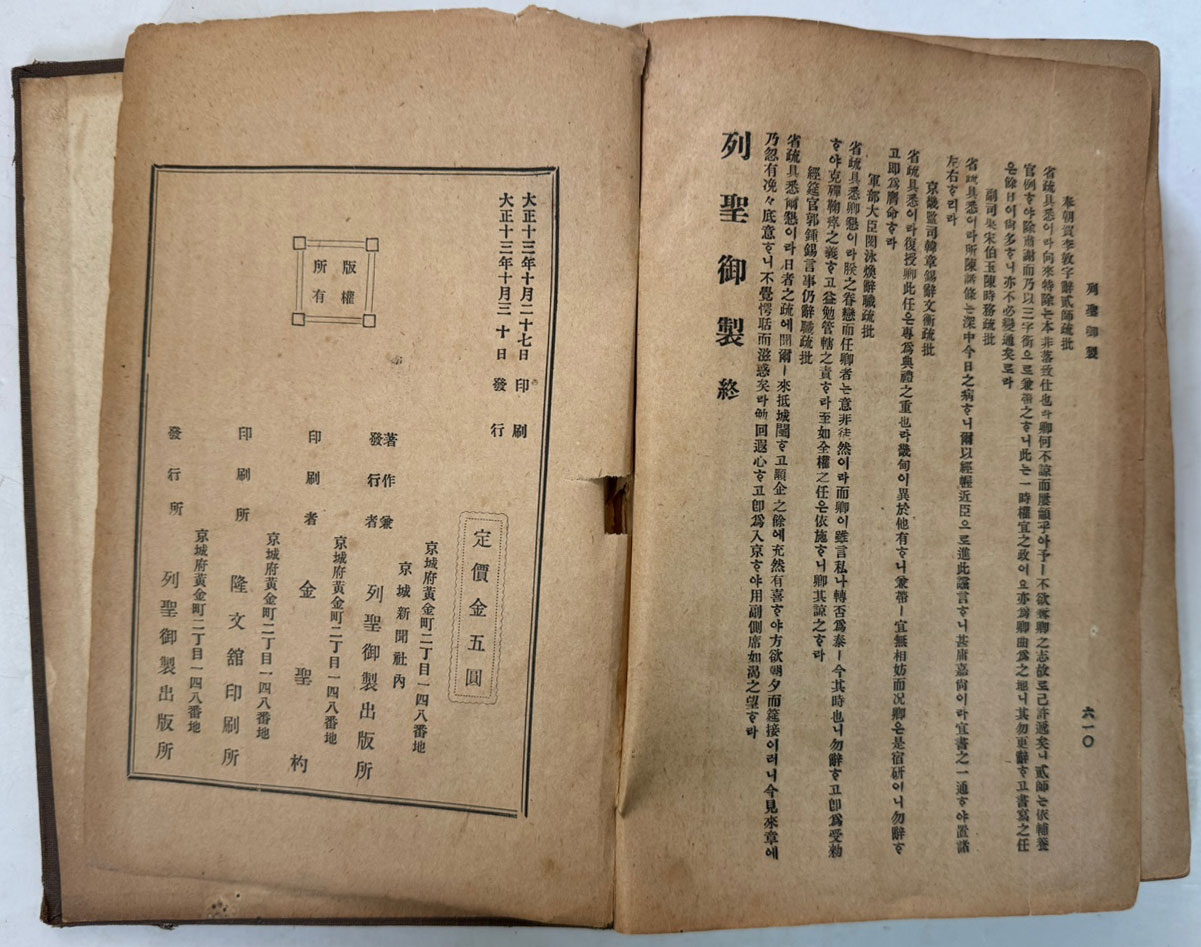 列聖御製
六一〇
奉朝賀李敦宇辭貳師疏批
省疏具悉이라向來特除는本非落致仕也라卿何不諒而屢顓乎아予ㅣ不欲奪卿之志故로已許遞矣니貳師는依輔養
官例하야除肅謝而乃以三字銜으로兼帶之하니此는一時權宜之政이오亦爲卿曲爲之地니其勿更辭하고書寫之任
은餘日이尙多하니亦不必變通矣로라
副司果宋伯玉陳時務疏批
省疏具悉이라所陳諸條는深中今日之病하니爾以經幄近臣으로進此讜言하니甚庸嘉尙이라宜書之一通하야置諸
左右하리라
京畿監司韓章錫辭文衡疏批
省疏具悉이라復授卿此任은專爲典禮之重也라畿甸이異於他有하니兼帶ㅣ宜無相妨而况卿은是宿研이니勿辭하
고卽爲膺命하라
軍部大臣閔泳煥辭職疏批
省疏具悉卿懇이라朕之眷戀而任卿者는意非徒然이라而卿이雖言私나轉否爲泰ㅣ今其時也니勿辭하고卽爲受勅
하야克殫鞠瘁之義하고益勉管轄之責하라至如全權之任은依施하니卿其諒之하라
經筵官郭鍾錫言事仍辭職疏批
省疏具悉爾懇이라日者之疏에聞爾ㅣ來抵城闉하고願企之餘에充然有喜하야方欲朝夕而筵接이러니今見來章에
乃忽有浼々底意하니不覺愕聒而滋惑矣라斯回遐心하고卽爲入京하야用副側席如渴之望하라
列聖御製 終
大正十三年十月二十七日印刷
大正十三年十月三十日發行
版權
所有
定價金五圓
京城府黃金町二丁目一四八番地
京城新聞社內
著作兼
發行者 列聖御製出版所
京城府黃金町二丁目一四八番地
印刷者 金聖杓
京城府黃金町二丁目一四八番地
印刷所 隆文舘印刷所
京城府黃金町二丁目一四八番地
發行所 列聖御製出版所